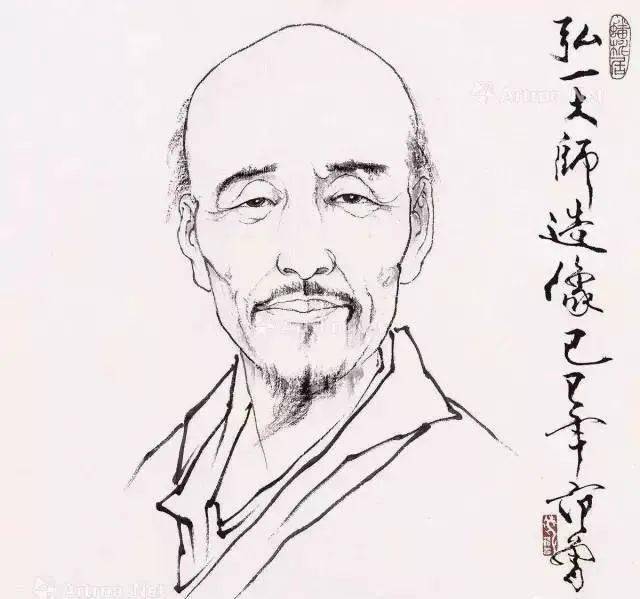 弘一大師造像己巳年范曾
Artron.Net
Artron.Net